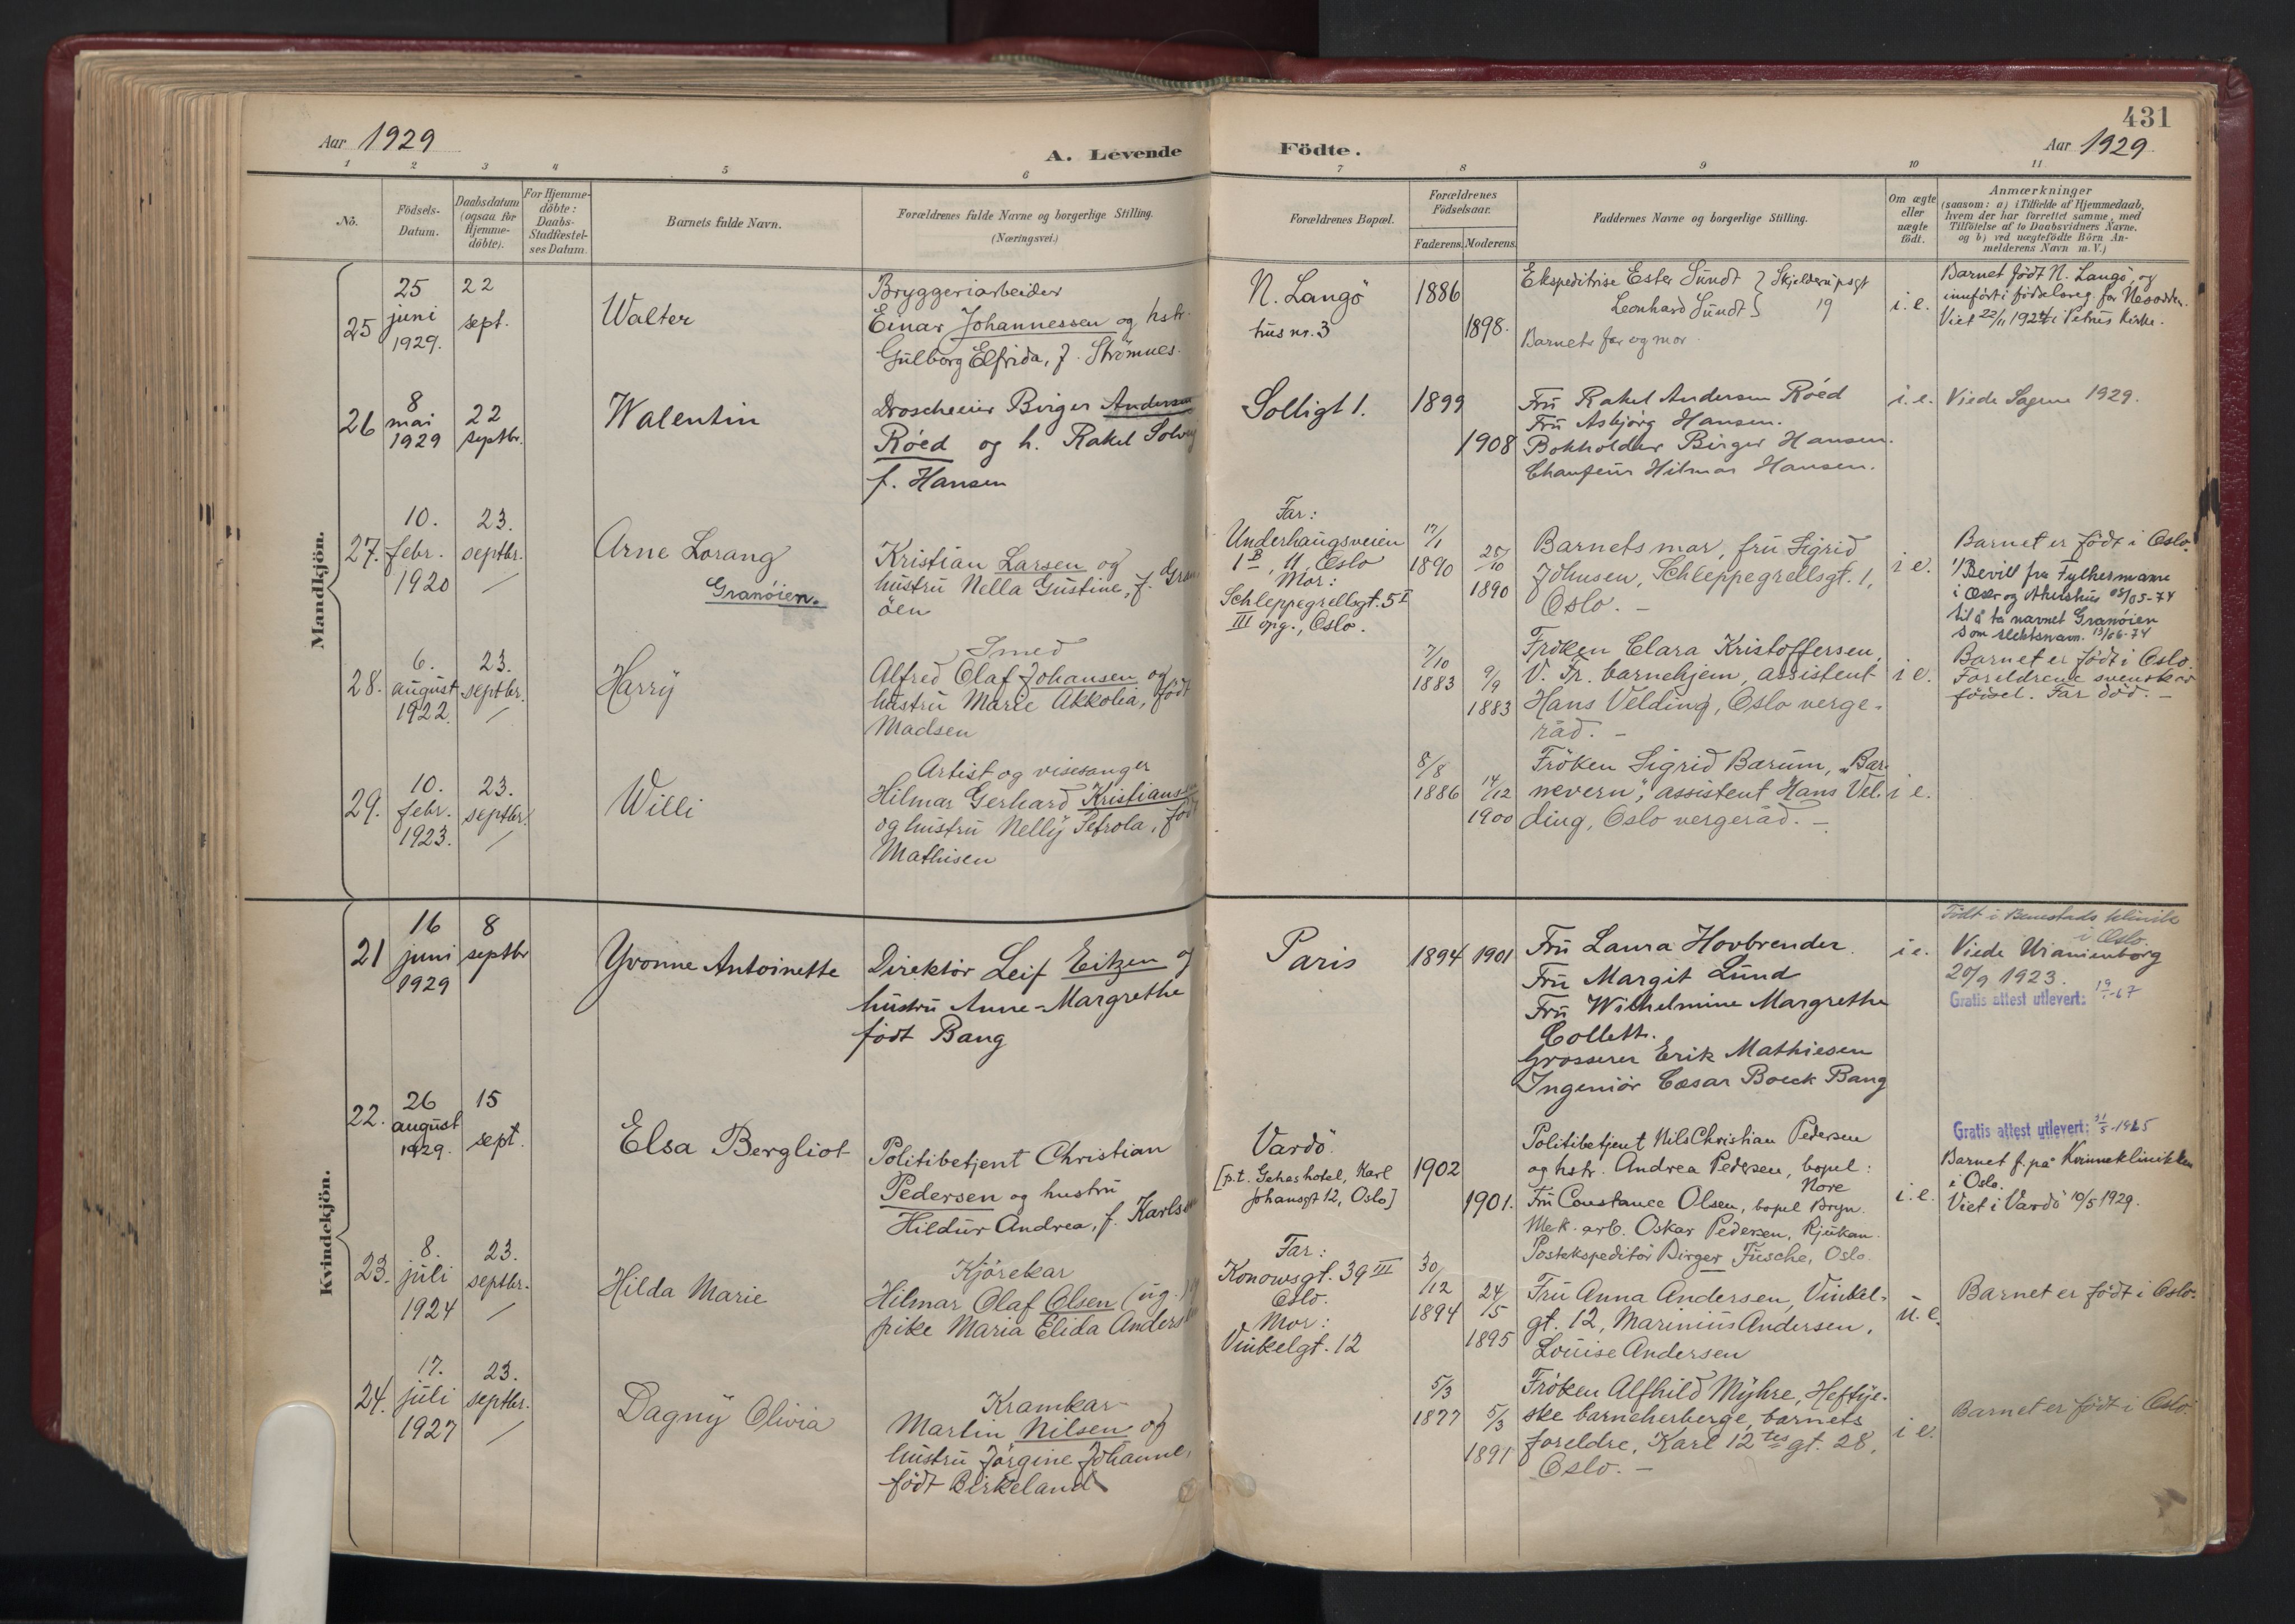 Aar 1929
A. Levende
Födte.
431
Aar 1929.
1 2 3 4 5 6 7 8 9 10 11
Nö.
Födsels-
Datum.
Daabsdatum
(ogsaa for
Hjemme-
döbte).
For Hjemme-
döbte:
Daabs-
Stadfæstel-
ses Datum.
Barnets fulde Navn.
Forældrenes fulde Navne og borgerlige Stilling.
(Næringsvei.)
Forældrenes Bopæl.
Forældrenes
Födselsaar.
Faderens. Moderens.
Faddernes Navne og borgerlige Stilling.
Om ægte
eller
uægte
födt.
Anmærkninger
(saasom: a) i Tilfælde af Hjemmedaab,
hvem der har forrettet samme, med
Tilföielse af to Daabsvidners Navne.
og b) ved uægtefödte Börn An-
melderens Navn m. V.)
Mandkjön.
25
25
juni
1929.
22
sept.
Walter
Bryggeriarbeider
Einar Johannessen og hstr.
Gulborg Elfrida, f. Strömnes.
N. Langö
hus nr. 3
1886
1898.
Ekspeditrise Ester Sundt } Skjelderupsgt
Leonhard Sundt } 19
Barnets far og mor.
i. e.
Barnet födt N. Langö, og
innfört i födselsreg. for Nesodden.
Viet 22/11 1924 i Petrus kirke.
26
8
mai
1929
22
septbr.
Walentin
Droscheeier Birger Andersen
Röed og h. Rakel Solveig
f. Hansen
Solligt 1.
1899
1908
Fru Rakel Andersen Röed
Fru Asbjörg Hansen.
Bokholder Birger Hansen.
Chaufeur Hilmar Hansen.
i. e.
Viede Sagene 1929.
27.
10.
febr.
1920
23.
septbr.
Arne Lorang
Granöien.
Kristian Larsen og
hustru Nella Gustine, f. Gran
öen
Far:
Underhaugsveien
1 B, II, Oslo
Mor:
Schleppegrellsgt. 5 I
III opg., Oslo.
17/1
1890
25/10
1890
Barnets mor, fru Sigrid
Johnsen, Schleppegrellsgt. 1,
Oslo. -
i e.
Barnet er födt i Oslo.
1) Bevill fra Fylkesmannen
i Oslo og Akershus 08/05-74
til å ta navnet Granöien
som slektsnavn. 13/06-74
28.
6.
august
1922.
23.
septbr.
Harry
Smed
Alfred Olaf Johansen og
hustru Marie Akkolia, född
Madsen
7/10
1883
9/9
1883
Fröken Clara Kristoffersen,
V. Fr. barnehjem, assistent
Hans Velding, Oslo verge-
råd. -
i e.
Barnet er födt i Oslo.
Foreldrene svensk av
föisel. Far död. -
29.
10.
febr.
1923.
23.
septbr.
Willi
Artist og visesanger
Hilmar Gerhard Kristiansen
og hustru Nelly Sefrola, född
Mathisen
8/8
1886
14/12
1900
Fröken Sigrid Barum, "Bar-
nevern", assistent Hans Vel-
ding, Oslo vergeråd. -
i e.
Kvindekjön.
21
16
juni
1929
8
septbr
Yvonne Antoinette
Direktör Leif Eitzen og
hustru Anne-Margrethe
födt Bang
Paris
1894
1901
Fru Laura Hovbrender.
Fru Margit Lund
Fru Wilhelmine Margrethe
Collett.
Grosserer Erik Mathiesen
Ingeniör Cæsar Boeck Bang
i e.
Födt i Benestads klinik
i Oslo.
Viede Uranienborg
20/9 1923.
Gratis attest utlevert: 19/1-67
22.
26
august
1929.
15
sept.
Elsa Bergliot
Politibetjent Christian
Pedersen og hustru
Hildur Andrea, f. Karlsen
Vardö.
[p.t. Gehes hotel, Karl
Johansgt 12, Oslo]
1902
1901.
Politibetjent Nils Christian Pedersen
og hstr. Andrea Pedersen, bopel:
Nore
Fru Constance Olsen, bopel Bryn.
Mek. arb. Oskar Pedersen, Rjukan.
Postekspeditör Birger Fusche, Oslo.
i. e.
Gratis attest utlevert: 31/5-1945
Barnet f. på Kvinneklinikken
i Oslo.
Viet i Vardö 10/5 1929.
23.
8.
juli
1924
23.
septbr.
Hilda Marie
Kjörekar
Hilmar Olaf Olsen (ug.) og
pike Maria Elida Andersen
Far:
Konowsgt. 39 III
Oslo.
Mor:
Vinkelgt. 12
30/12
1894
24/5
1895
Fru Anna Andersen, Vinkel-
gt. 12, Marinius Andersen,
Louise Andersen
u. e.
Barnet er födt i Oslo.
24.
17.
juli
1927
23.
septbr.
Dagny Olivia
Kramkar
Martin Nilsen og
hustru Jörgine Johanne,
födt Birkeland
5/3
1877
5/3
1891
Fröken Alfhild Myhre, Heftye-
ske barneherberge, barnets
foreldre, Karl 12tes gt. 28,
Oslo. -
i e.
Barnet er födt i Oslo.